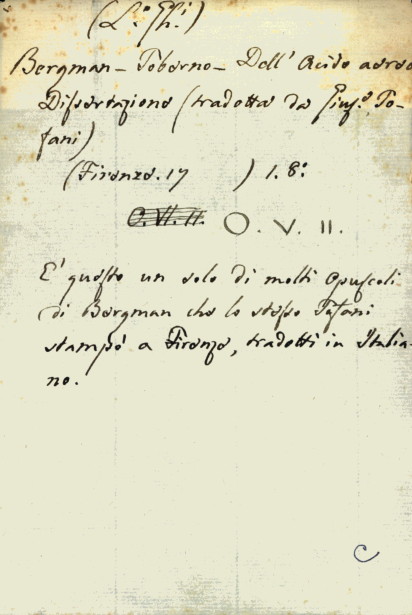 (L.° Th.i)
Bergman - Toberno - Dell' Acido aereo
Dissertazione (tradotta da Gius.e To-
fani)
(Firenze. 17 ) 1. 8.°
O. VI. II. O. V. II.
E' questo un solo di molti opuscoli
di Bergman che lo stesso Tofani
stampò a Firenze, tradotti in Italia-
no.
C